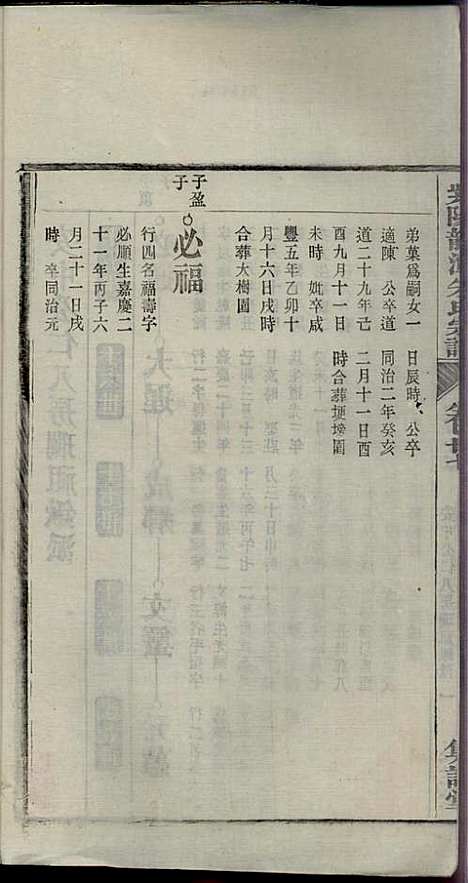 弟菓爲嗣女一
適陳 公卒道
道二十九年己
酉九月十一日
未時 妣卒咸
豐五年乙卯十
月十六日戌時
合葬大樹園
子盈
子
必福
行四名福壽字
必順生嘉慶二
十一年丙子六
月二十一日戌
時 卒同治元
日辰時 公卒
同治二年癸亥
二月十一日酉
時合葬埂塝園
卷廿七